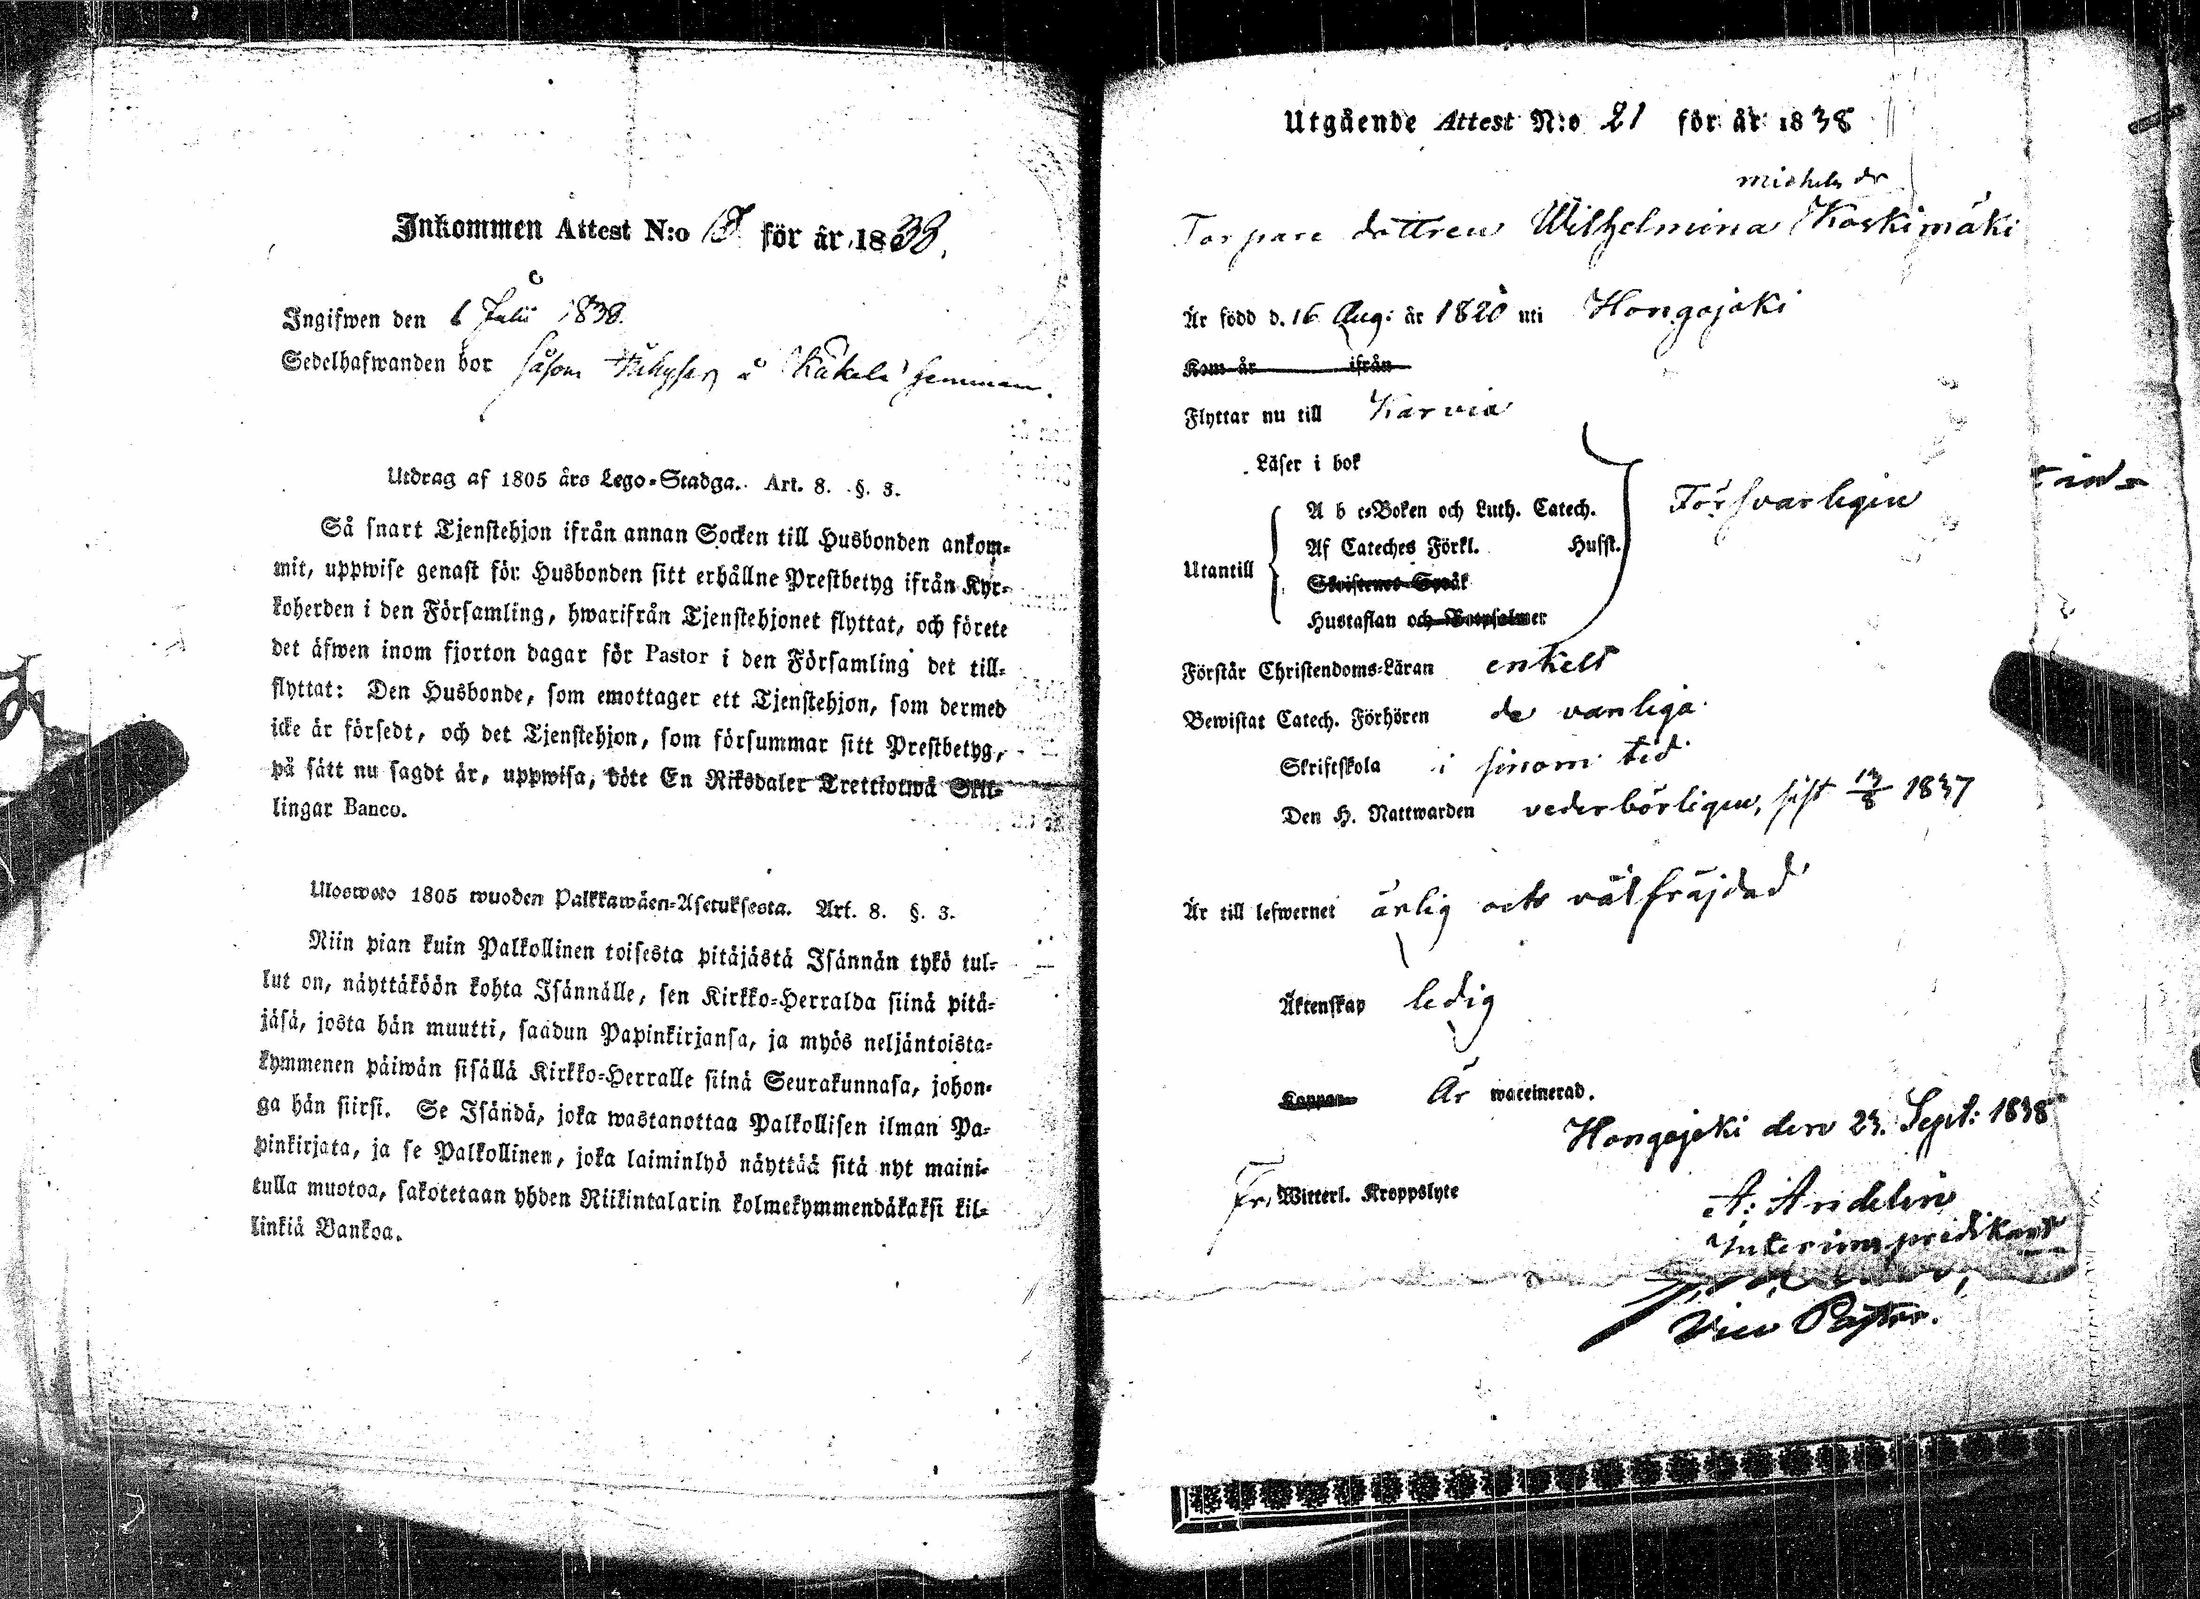 Inkommen Attest N:o för år 1838.
Ingifwen den 6 Julii 1838.
Sedelhafwanden bor såsom å Käkelä hemman.
Utdrag af 1805 års Lego-Stadga. Art. 8. §. 3.
Så snart Tjenstehjon ifrån annan Socken till Husbonden ankom-
mit, uppwise genast för Husbonden sitt erhållne Prestbetyg ifrån Kyr-
koherden i den Församling, hwarifrån Tjenstehjonet flyttat, och förete
det äfwen inom fjorton dagar för Pastor i den Församling det till-
flyttat: Den Husbonde, som emottager ett Tjenstehjon, som dermed
icke är försedt, och det Tjenstehjon, som försummar sitt Prestbetyg,
på sätt nu sagdt är, uppwisa, böte En Riksdaler Trettiotwå Skil-
lingar Banco.
Uloswoto 1805 wuoden Palkkawäen-Asetuksesta. Art. 8. §. 3.
Niin pian kuin Palkollinen toisesta pitäjästä Isännän tykö tul-
lut on, näyttäköön kohta Isännälle, sen Kirkko-Herralda siinä pitä-
jäsä, josta hän muutti, saadun Papinkirjansa, ja myös neljäntoista-
kymmenen päiwän sisällä Kirkko-Herralle siinä Seurakunnasa, johon-
ga hän siirsi. Se Isändä, joka wastanottaa Palkollisen ilman Pa-
pinkirjata, ja se Palkollinen, joka laiminlyö näyttää sitä nyt maini-
tulla muotoa, sakotetaan yhden Riikintalarin kolmekymmendäkaksi kil-
linkiä Bankoa.
Utgående Attest N:o 21 för år 1838
michels dr
Torpare dottren Wilhelmina Koskimäki
Är född d. 16 Aug: år 1820 uti Hongojoki
Kom år ifrån
Flyttar nu till Karvia
Läser i bok
A b c-Boken och Luth. Catech.
Försvarligen
Af Cateches Förkl. Husst.
Utantill
Skriftenes Språk
Hustaflan och Botpsalmer
Förstår Christendoms-Läran enkelt
Bewistat Catech. Förhören de vanliga
Skriftskola i sinom tid
Den H. Nattwarden vederbörligen, sist 13/8 1837
Är till lefwernet ärlig och välfräjdad
Äktenskap ledig
Koppor Är waccinerad.
Hongojoki den 23. Sept: 1838
Fr. Witterl. Kroppslyte
A: Andelin
Interims predikant
Vice Pastor.